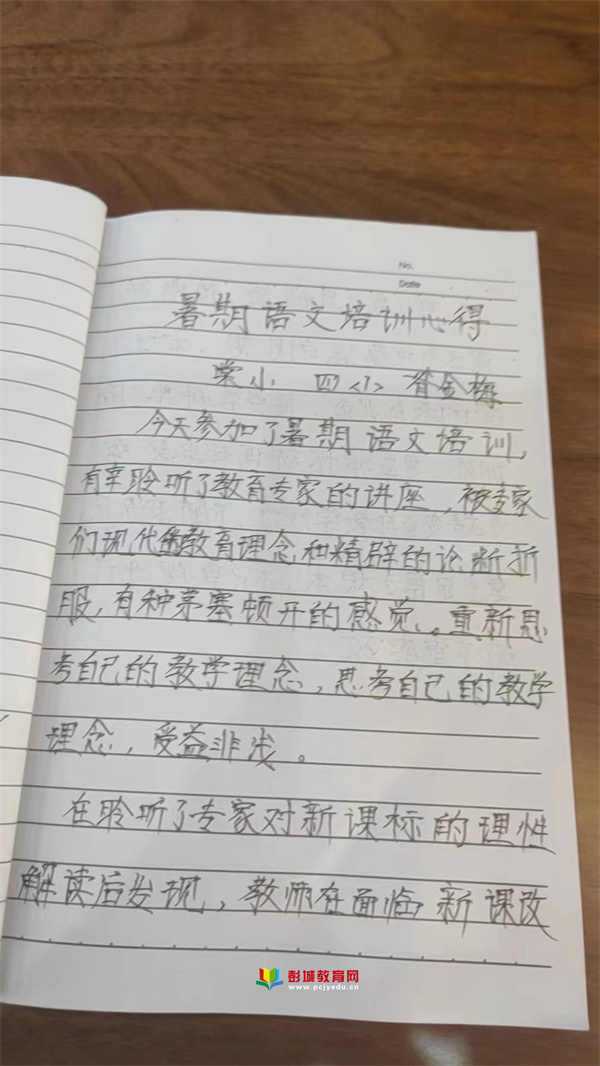 No.
Date
暑期语文培训心得
小 四<1> 金梅
今天参加了暑期语文培训,
有幸聆听了教育专家的讲座,被专家
们现代教育理念和精辟的论断折
服,有种茅塞顿开的感觉。重新思
考自己的教学理念,思考自己的教学
理念,受益非浅。
在聆听了专家对新课标的理性
解读后发现,教师在面临新课改
彭城教育网
www.pcjyedu.cn